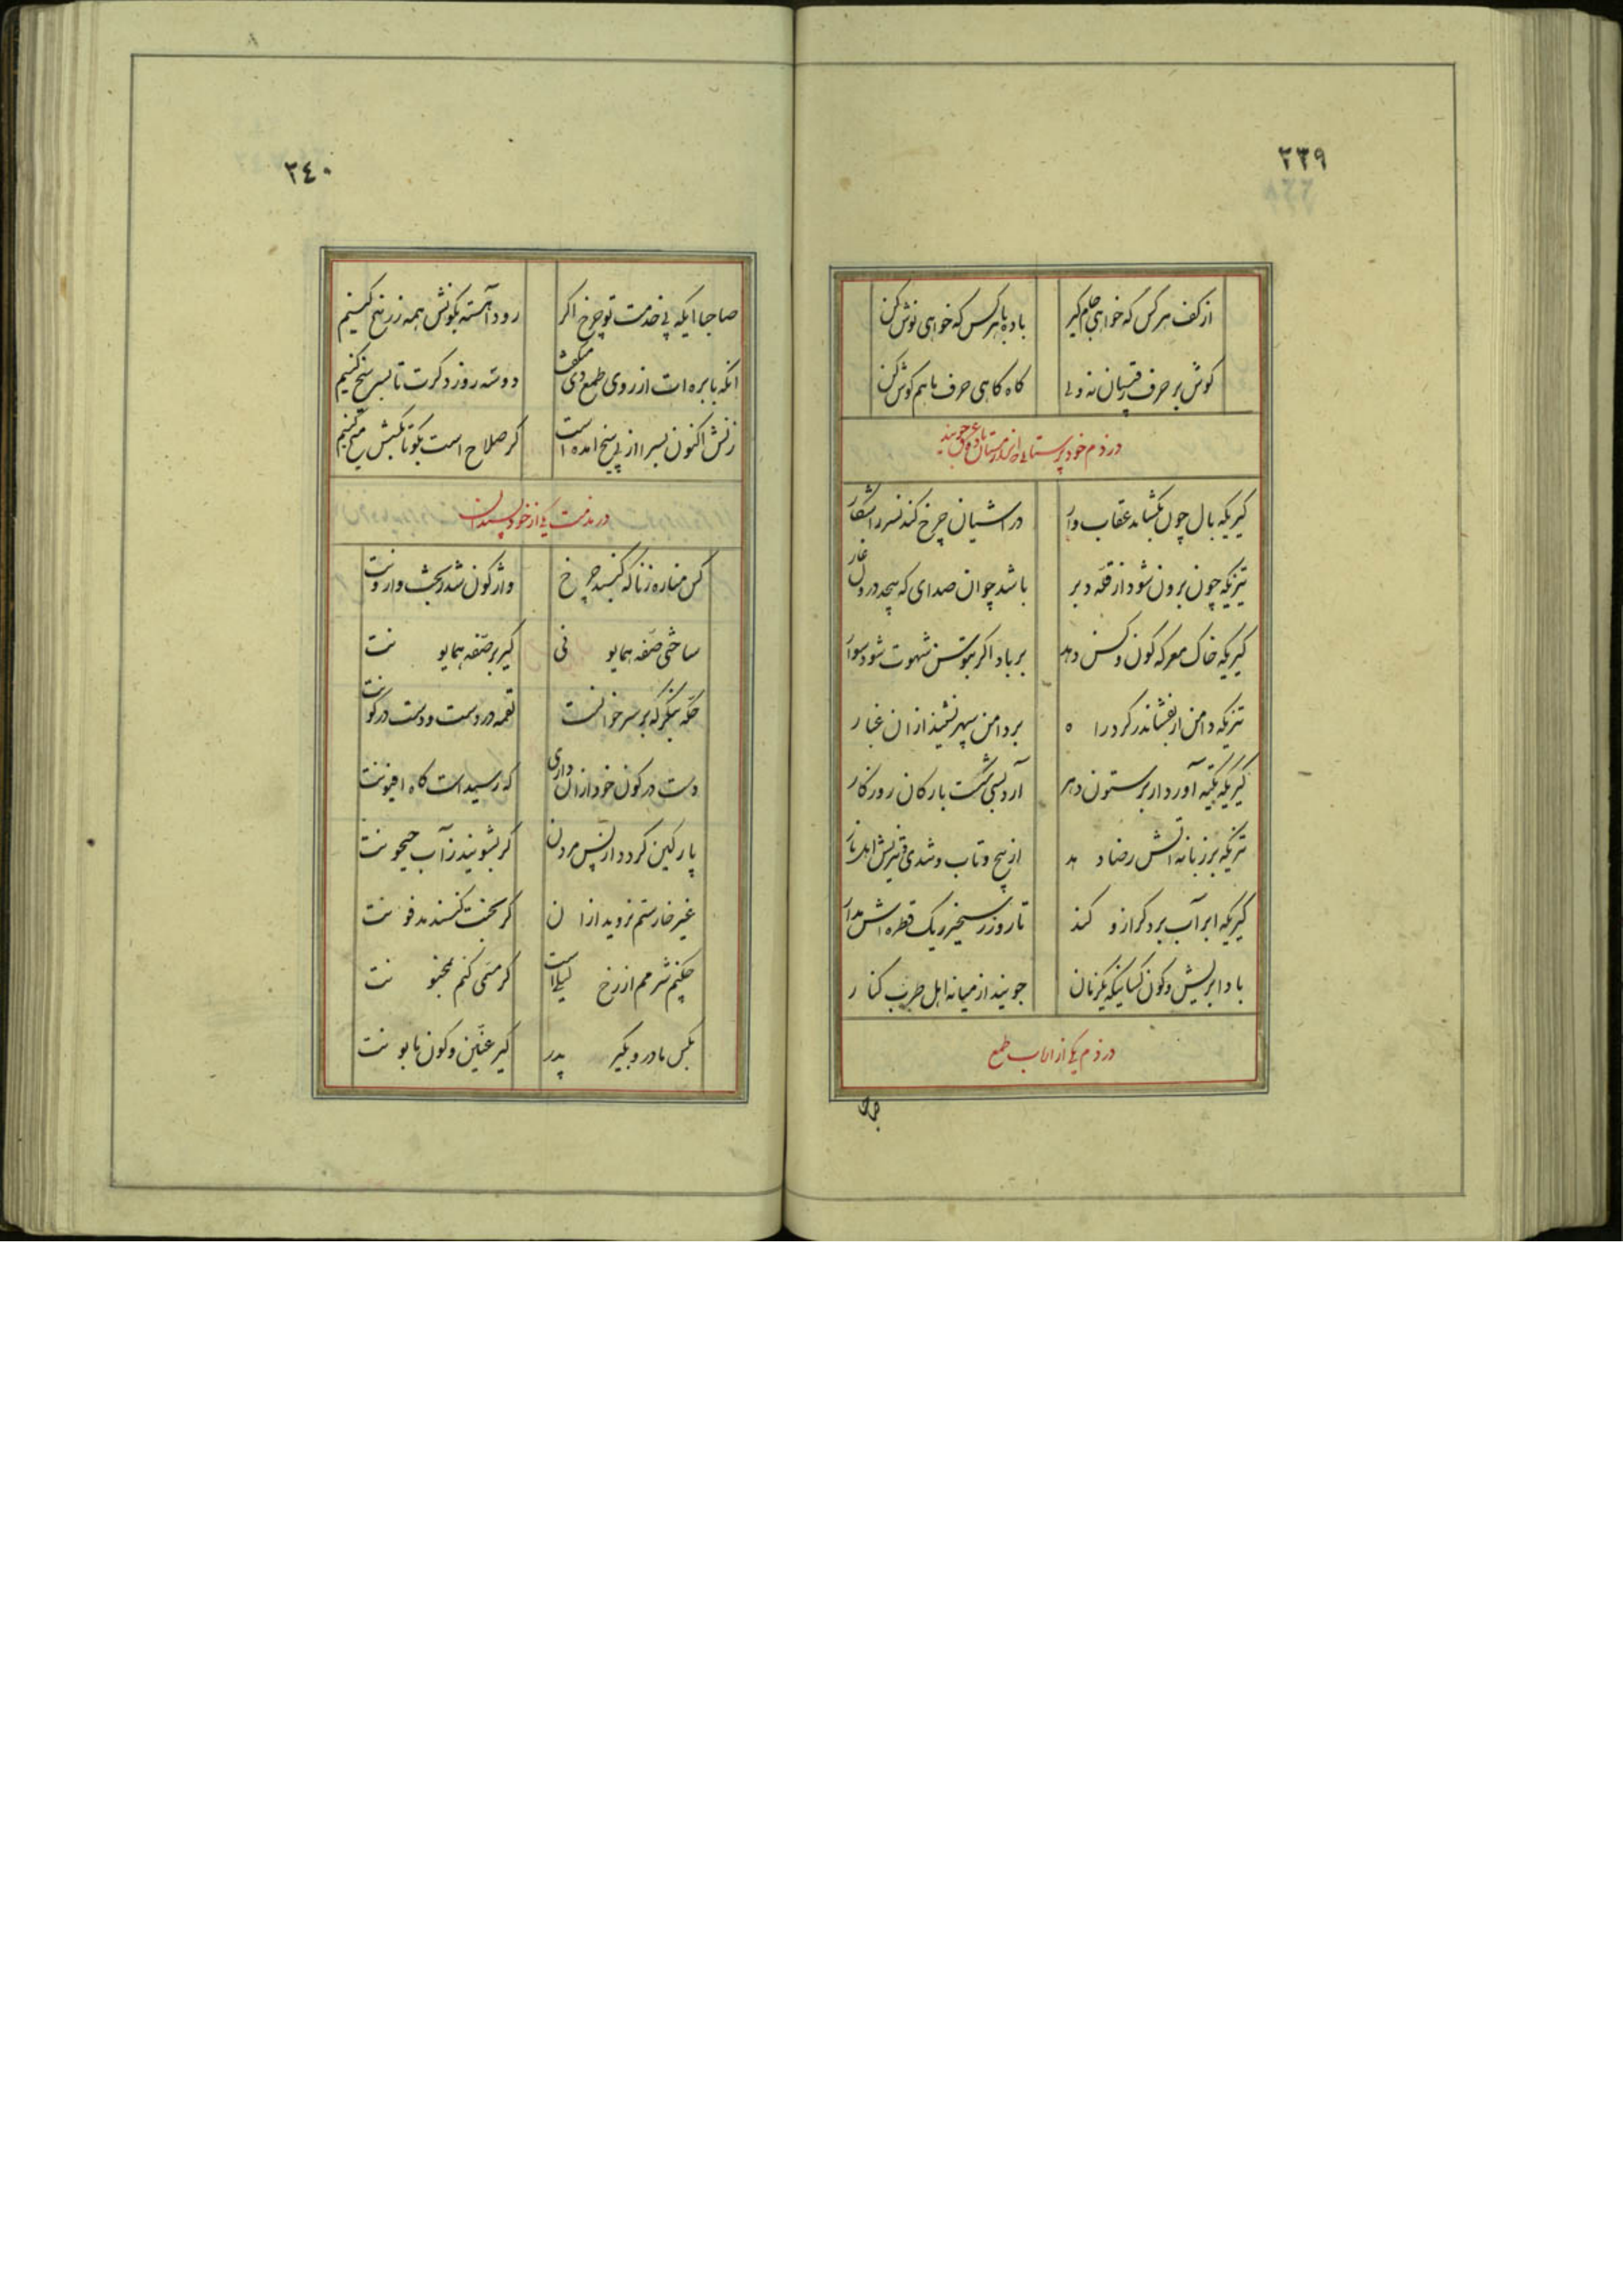 ٢٣٩
از کف هر کس که خواهی جام گیر باده با هر کس که خواهی نوش کن
کوش بر حرف رقیبان نه ولی کاه کاهی حرف ما هم کوش کن
در ذم خود پرستانی که از مستان
کیریکه بال چون بکشاید عقاب وار در آشیان چرخ کند نسر را شکار
تیزیکه چون برون شود از قعر دبر باشد چو آن صدای که پیچد درون غار
کیریکه خاک معرکه کون و کس دهد بر باد اگر بتوسن شهوت شود سوار
تیزیکه دامن ار بفشاند ز کرد راه بر دامن سپهر نشیند از آن غبار
کیریکه تکیه آورد ار بر ستون دهر آرد بسی شکست بارکان روزکار
تیزیکه بر زبانه آتش رضا دهد از پیچ و تاب
کیریکه ابر آب برد کر ازو کند تا روز رستخیز یک قطره اش مدار
باد ابریش و کون کسانیکه یکزمان جویند از میانه اهل طرب کنار
در ذم یکی از ارباب طمع
٢٤٠
صاحبا ایکه پی خدمت تو چرخ اکر رود آهسته بکوشش همه زرنیخ کنیم
آنکه با بره ات از روی طمع دی میکفت دو سه روز دکرت تا بسر سیخ کنیم
زنش اکنون بسرا از پی سیخ آمده است کر صلاح است بکو تا بکسش میخ کنیم
در مذمت یکی از خود پسندان
کس مناره زنا که کنبد چرخ واژکون شد ز بخت وارونت
ساختی صفه همایونی کیر بر صفه همایونت
حکه بنکر که بر سر خوانت لقمه در دست و دست در کونت
دست در کون خود از آن داری که رسیداست کاه افیونت
پارکین کردد از پس مردن کر بشویند ز آب جیحونت
غیر خار ستم نروید از آن کر بجنت کنند مدفونت
چکنم شرمم از رخ لیلی است کر مسمی کنم بمجنونت
بکس مادر و بکیر پدر کیر عنین و کون مابونت